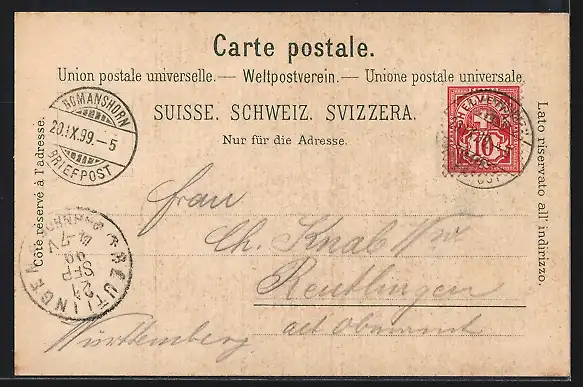 Carte postale.
Union postale universelle. — Weltpostverein. — Unione postale universale.
SUISSE. SCHWEIZ. SVIZZERA.
Nur für die Adresse.
Côté réservé à l'adresse.
Lato riservato all' indirizzo.
ROMANSHORN
20.IX.99. – 5
BRIEFPOST
HELVETIA
10
Frau
Ch. Knab Ww.
Reutlingen
Württemberg
REUTLINGEN
21
SEP
99
4-7V